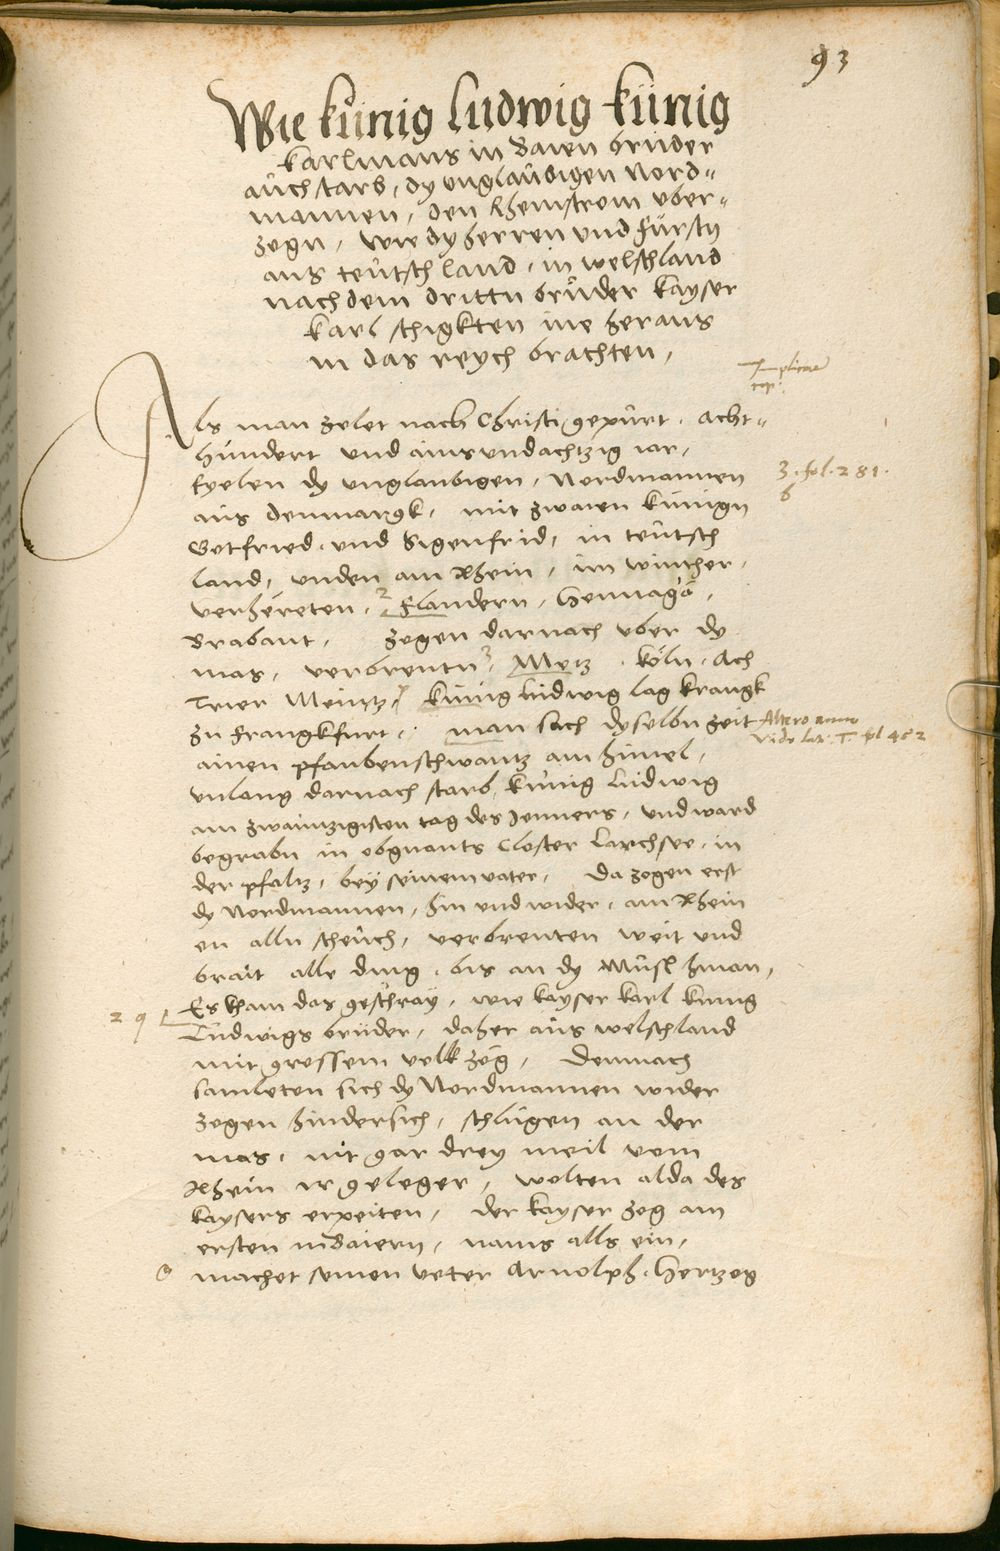 93
Wie künig ludwig künig
karlmans in Baien brüder
aůch starb, dy unglaůbigen Nord=
mannen, den Rheinstrom uber=
zogn, wie dy herren und fürstn
aus teůtschland, in welschland
nach dem drittn brůder kayser
karl schigkten ine heraus
in das reych brachten,
Als man zelet nach Christi gepůrt. Acht=
hůndert und ains und achtzig iar,
3. fol. 281.
6
fyelen dy unglaubigen, Nordmannen
aůs denmargk, mit zwaien künign
Gotfried. und Sigenfrid, in teůtsch
land, unden am Rhein, im winther,
verhéreten, 2 Flandern, Hennagò,
Brabant, zogen darnach uber dy
mas, verbrentn 3, Metz. köln. Ach
Trier Meintz, künig lůdwig lag krangk
zu frangkfurt, man sach dyselbn zeit
Altero anno
fol 452
ainen pfaubenschwantz am himel,
unlang darnach starb künig ludwig
am zwaintzigisten tag des Jenners, und ward
begrabn in obgnants Closter Larchsee, in
der pfaltz, bey seinem vater, Da zogen erst
dy Nordmannen, hin und wider, am Rhein
on alln scheůch, verbrenten weit und
brait alle ding. bis an dy Můsl hinan,
29
Es kham das geschray, wie kayser karl künig
Lůdwigs brüder, daher aůs welschland
mit grossem volk zóg, Demnach
samleten sich dy Nordmannen wider
zogen hindersich, schlůgen an der
mas, nit gar drey meil vom
Rhein ir geleger, wolten alda des
kaysers erpeiten, der kayser zog am
ersten in Baiern, nams alls ein,
machet seinen veter Arnolph. Hertzog